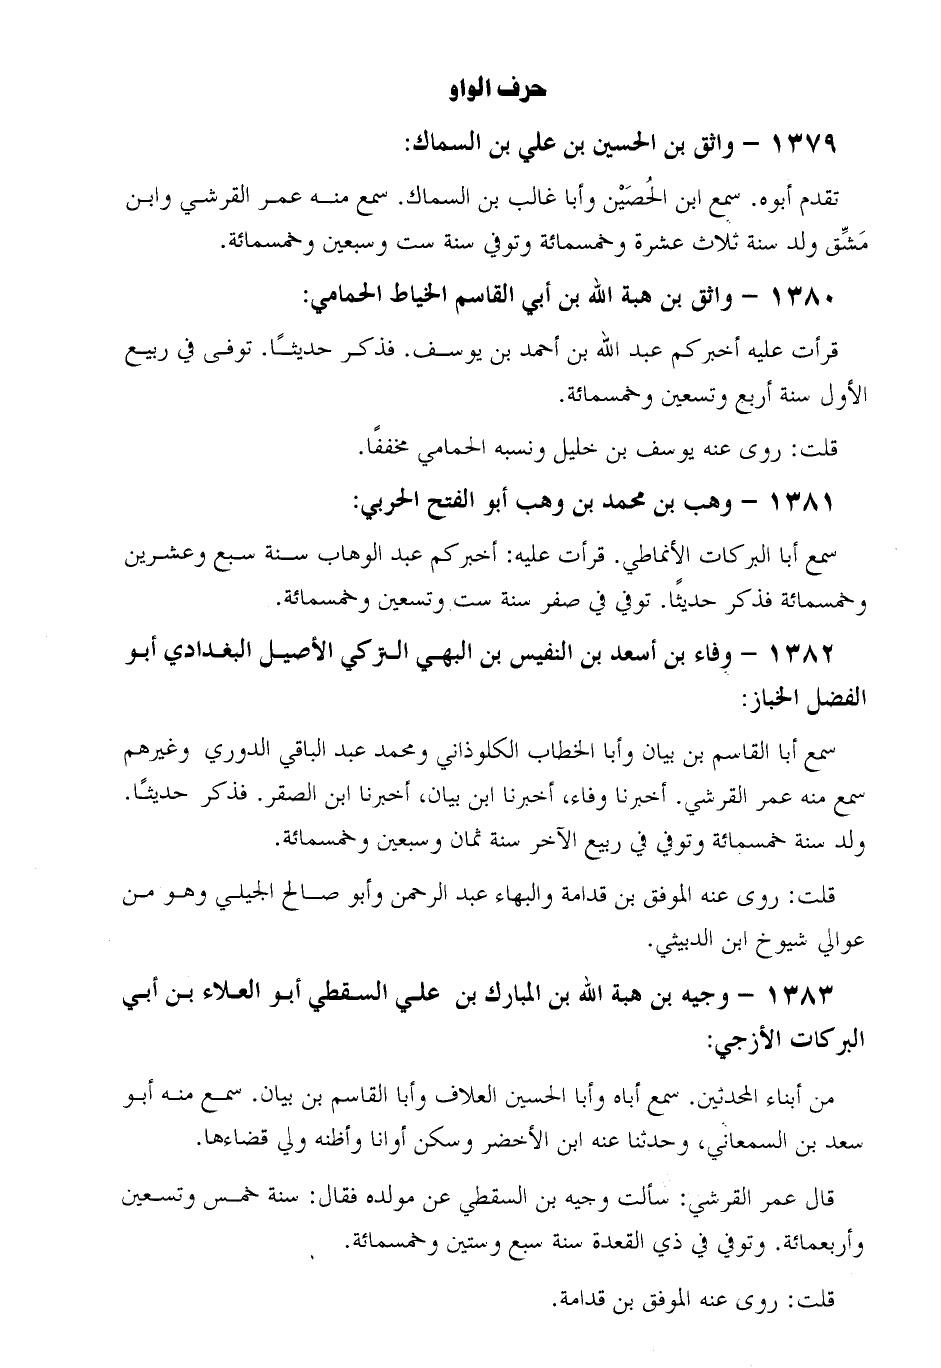 حرف الواو
١٣٧٩ – واثق بن الحسين بن علي بن السماك:
تقدم أبوه. سمع ابن الحُصَيْن وأبا غالب بن السماك. سمع منه عمر القرشي وابن
مَشِّق ولد سنة ثلاث عشرة وخمسمائة وتوفي سنة ست وسبعين وخمسمائة.
١٣٨٠ – واثق بن هبة الله بن أبي القاسم الخياط الحمامي:
قرأت عليه أخبركم عبد الله بن أحمد بن يوسف. فذكر حديثًا. توفى في ربيع
الأول سنة أربع وتسعين وخمسمائة.
قلت: روى عنه يوسف بن خليل ونسبه الحمامي مخففًا.
١٣٨١ – وهب بن محمد بن وهب أبو الفتح الحربي:
سمع أبا البركات الأنماطي. قرأت عليه: أخبركم عبد الوهاب سنة سبع وعشرين
وخمسمائة فذكر حديثًا. توفي في صفر سنة ست وتسعين وخمسمائة.
١٣٨٢ – وفاء بن أسعد بن النفيس بن البهي التركي الأصيل البغدادي أبو
الفضل الخباز:
سمع أبا القاسم بن بيان وأبا الخطاب الكلوذاني ومحمد عبد الباقي الدوري وغيرهم
سمع منه عمر القرشي. أخبرنا وفاء، أخبرنا ابن بيان، أخبرنا ابن الصقر. فذكر حديثًا.
ولد سنة خمسمائة وتوفي في ربيع الآخر سنة ثمان وسبعين وخمسمائة.
قلت: روى عنه الموفق بن قدامة والبهاء عبد الرحمن وأبو صالح الجيلي وهو من
عوالي شيوخ ابن الدبيثي.
١٣٨٣ – وجيه بن هبة الله بن المبارك بن علي السقطي أبو العلاء بن أبي
البركات الأزجي:
من أبناء المحدثين. سمع أباه وأبا الحسين العلاف وأبا القاسم بن بيان. سمع منه أبو
سعد بن السمعاني، وحدثنا عنه ابن الأخضر وسكن أوانا وأظنه ولي قضاءها.
قال عمر القرشي: سألت وجيه بن السقطي عن مولده فقال: سنة خمس وتسعين
وأربعمائة. وتوفي في ذي القعدة سنة سبع وستين وخمسمائة.
قلت: روى عنه الموفق بن قدامة.